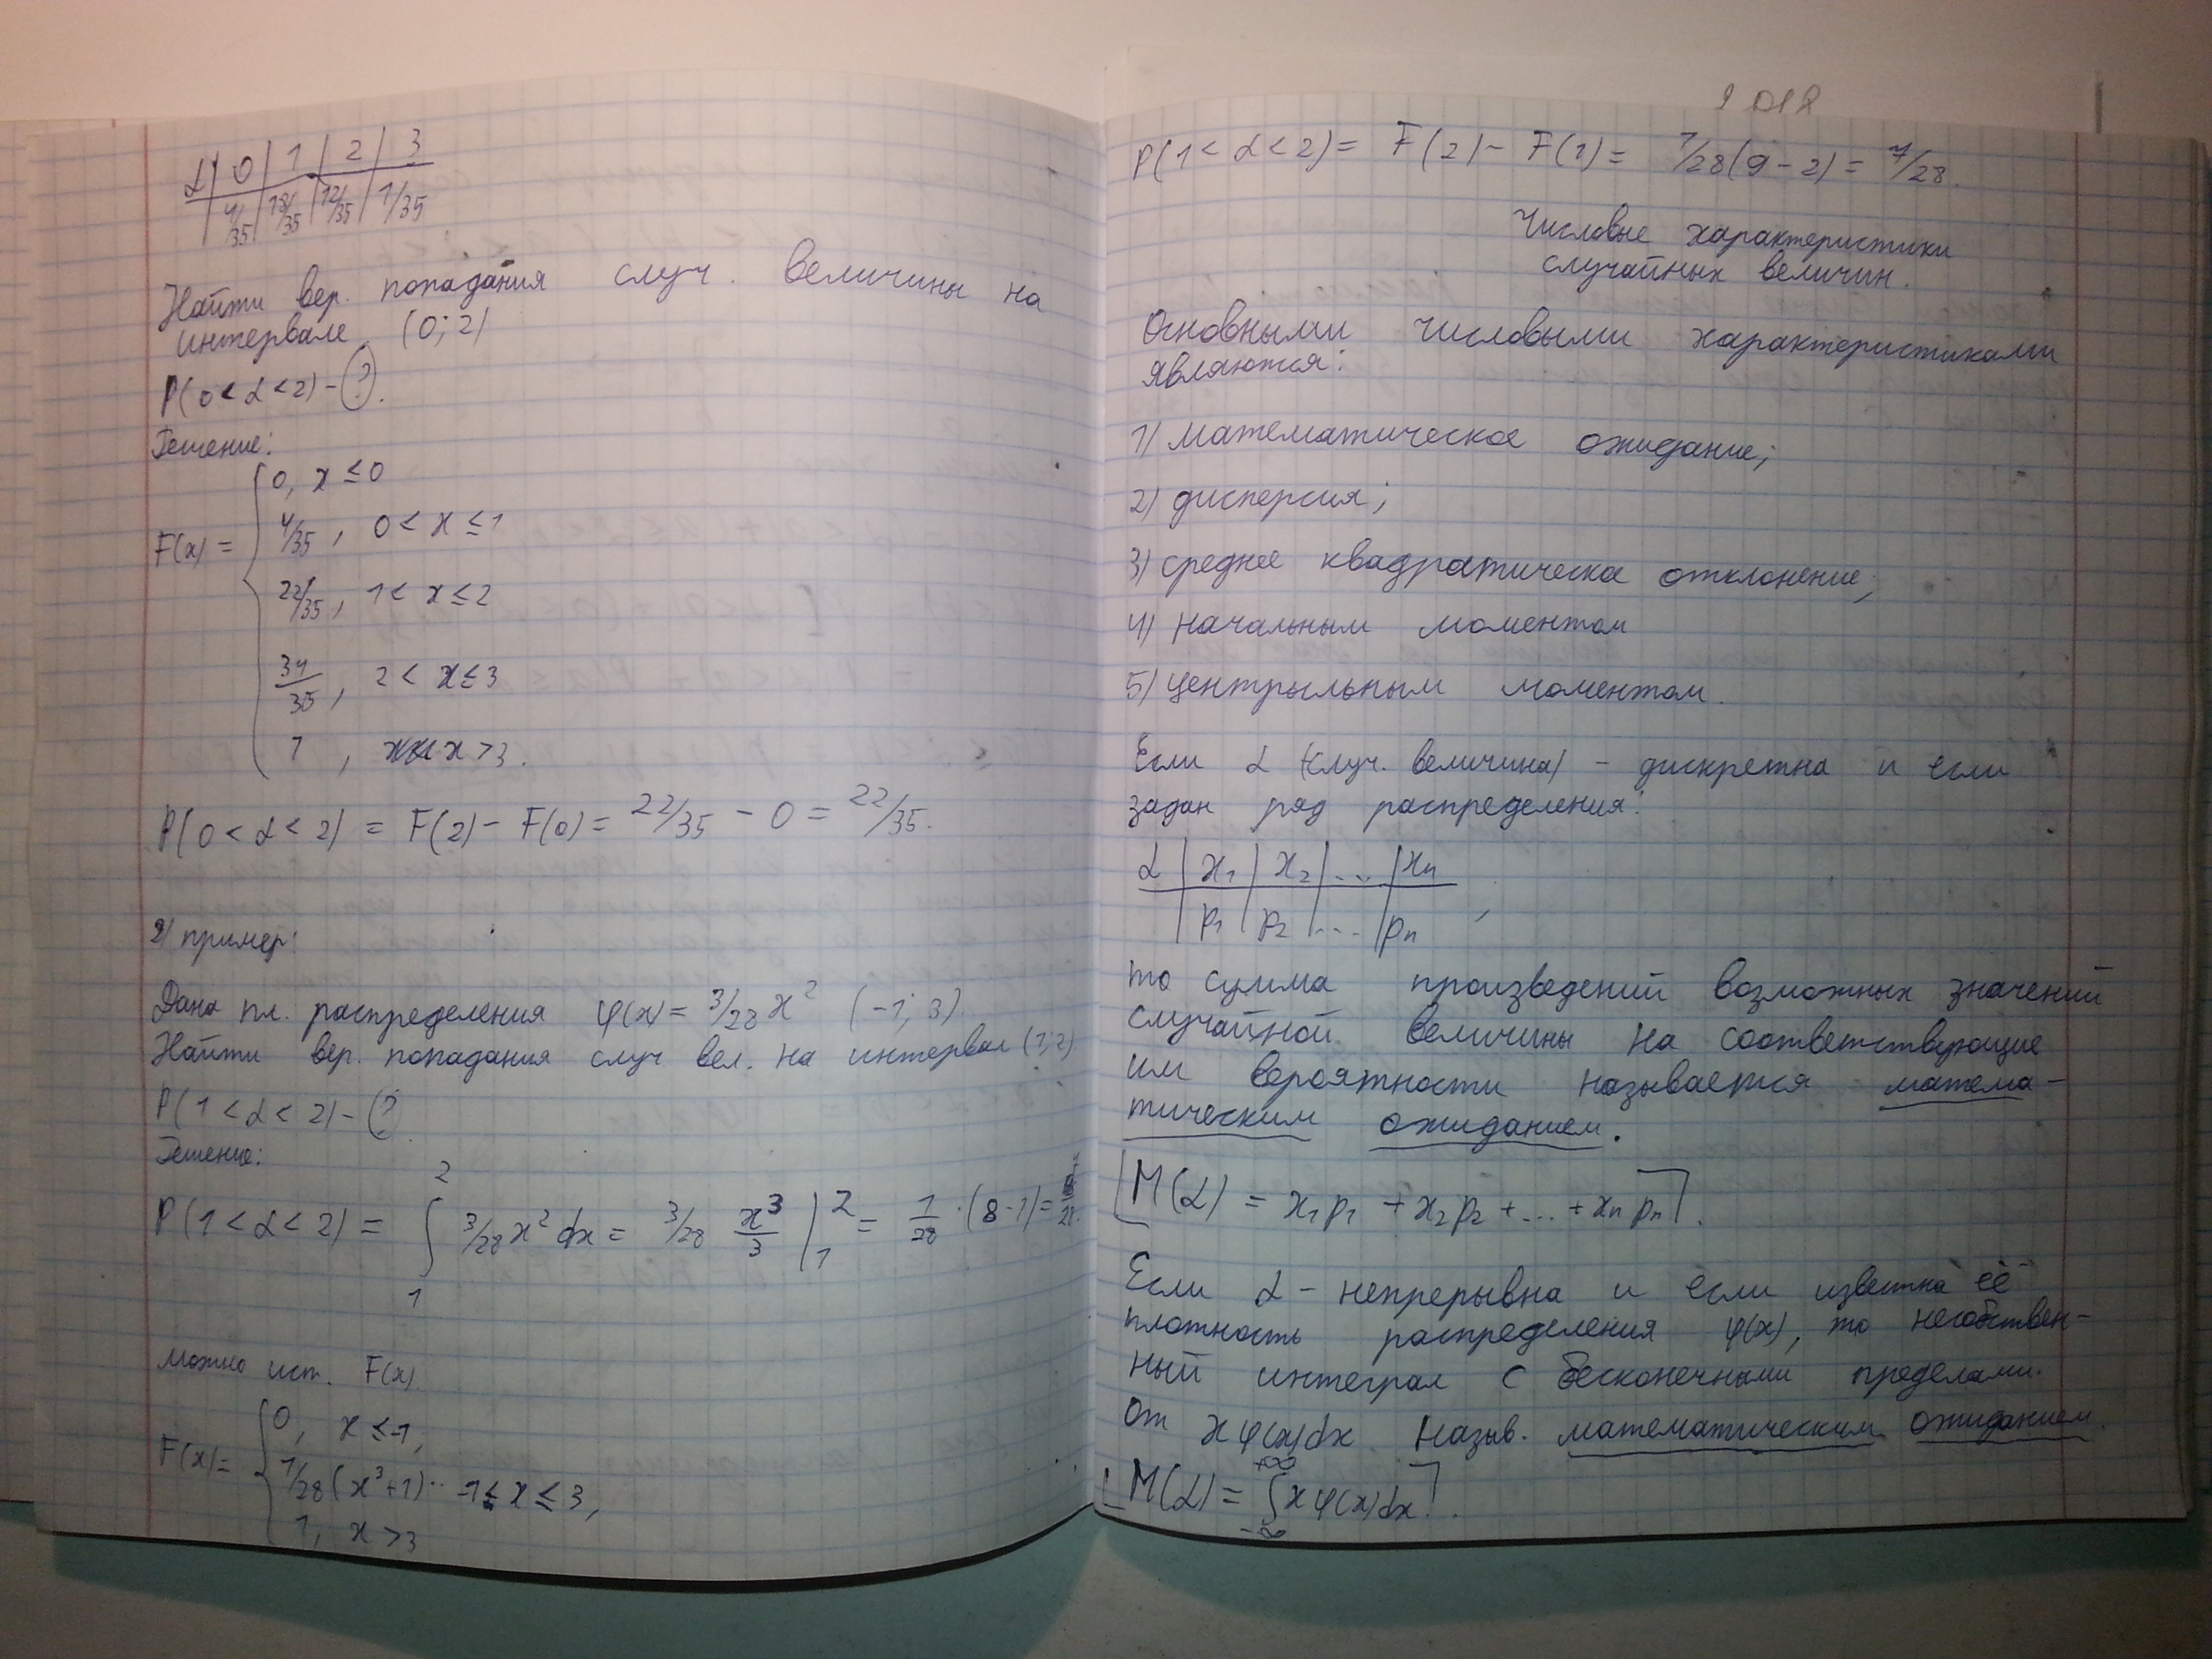 α | 0 | 1 | 2 | 3
4/35 | 18/35 | 12/35 | 1/35
Найти вер. попадания случ. величины на
интервале (0; 2)
P(0 < α < 2) - ?.
Решение:
F(x) = { 0, x ≤ 0
4/35, 0 < x ≤ 1
22/35, 1 < x ≤ 2
34/35, 2 < x ≤ 3
1, x > 3.
P(0 < α < 2) = F(2) - F(0) = 22/35 - 0 = 22/35.
2) пример:
Дана пл. распределения φ(x) = 3/28 x² (-1; 3)
Найти вер. попадания случ. вел. на интервал (1; 2)
P(1 < α < 2) - ?
Решение:
P(1 < α < 2) = ∫₁² 3/28 x² dx = 3/28 x³/3 |₁² = 1/28 · (8 - 1) =
можно исп. F(x).
F(x) = { 0, x ≤ -1,
1/28 (x³ + 1) -1 ≤ x ≤ 3,
1, x > 3
P(1 < α < 2) = F(2) - F(1) = 1/28 (9 - 2) = 7/28.
Числовые характеристики
случайных величин.
Основными числовыми характеристиками
являются:
1) математическое ожидание;
2) дисперсия;
3) среднее квадратическое отклонение;
4) начальным моментом
5) центрыльным моментом.
Если α (случ. величина) - дискретна и если
задан ряд распределения:
α | x₁ | x₂ | ... | xₙ
p₁ | p₂ | ... | pₙ ,
то сумма произведений возможных значений
случайной величины на соответствующие
им вероятности называется матема-
тическим ожиданием.
[M(α) = x₁p₁ + x₂p₂ + ... + xₙpₙ].
Если α - непрерывна и если известна её
плотность распределения φ(x), то несобствен-
ный интеграл с бесконечными пределами
от xφ(x)dx назыв. математическим ожиданием.
[M(α) = ∫₋∞⁺∞ xφ(x)dx].